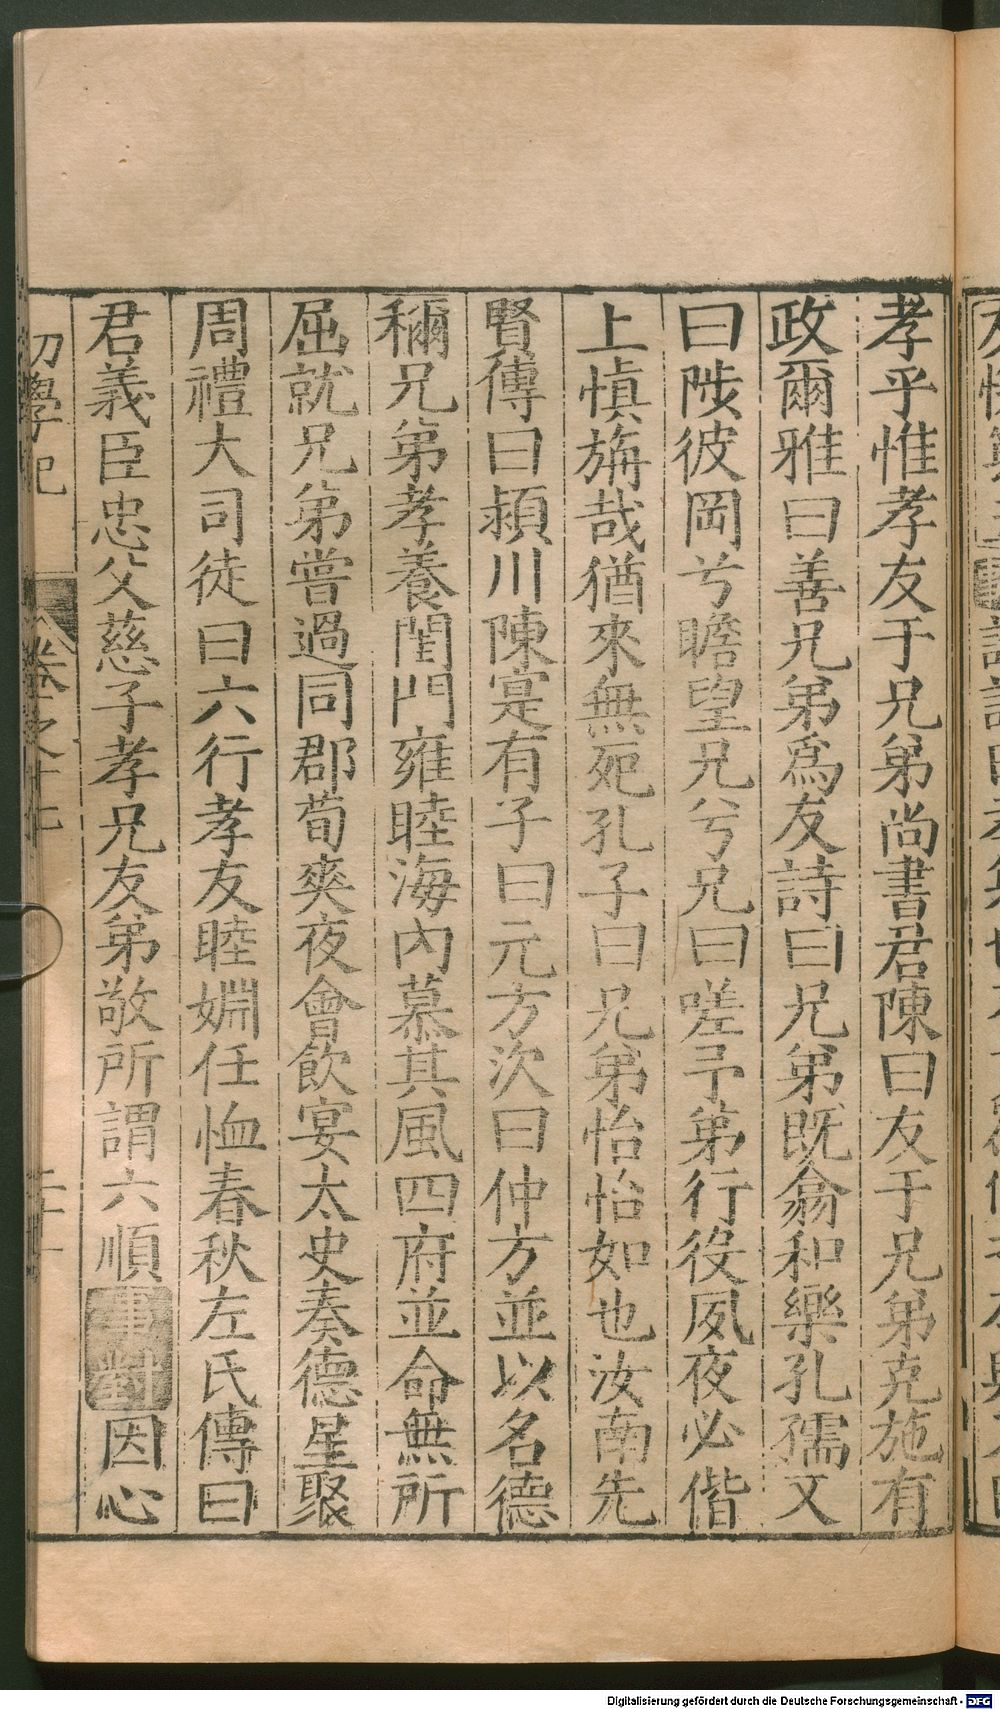 孝乎惟孝友于兄弟尚書君陳曰友于兄弟克施有
政爾雅曰善兄弟爲友詩曰兄弟既翕和樂孔孺又
曰陟彼岡兮瞻望兄兮兄曰嗟予弟行役夙夜必偕
上慎旃哉猶來無死孔子曰兄弟怡怡如也汝南先
賢傳曰潁川陳寔有子曰元方次曰仲方並以名德
稱兄弟孝養閨門雍睦海內慕其風四府並命無所
屈就兄弟嘗過同郡荀爽夜會飲宴太史奏德星聚
周禮大司徒曰六行孝友睦婣任恤春秋左氏傳曰
君義臣忠父慈子孝兄友弟敬所謂六順事對因心
初學記 卷之十七
Digitalisierung gefördert durch die Deutsche Forschungsgemeinschaft - DFG